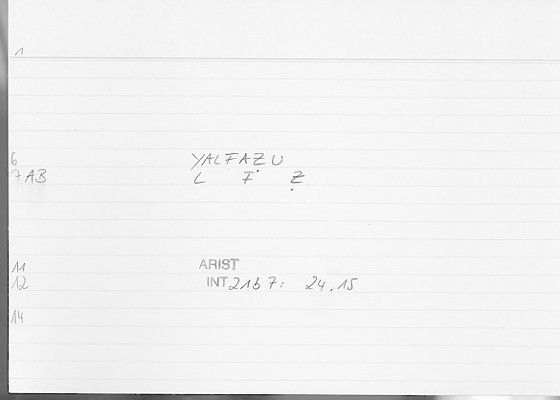 1
6 YALFAẒU
7AB L F Ẓ
11 ARIST
12 INT 21b7: 24.15
14